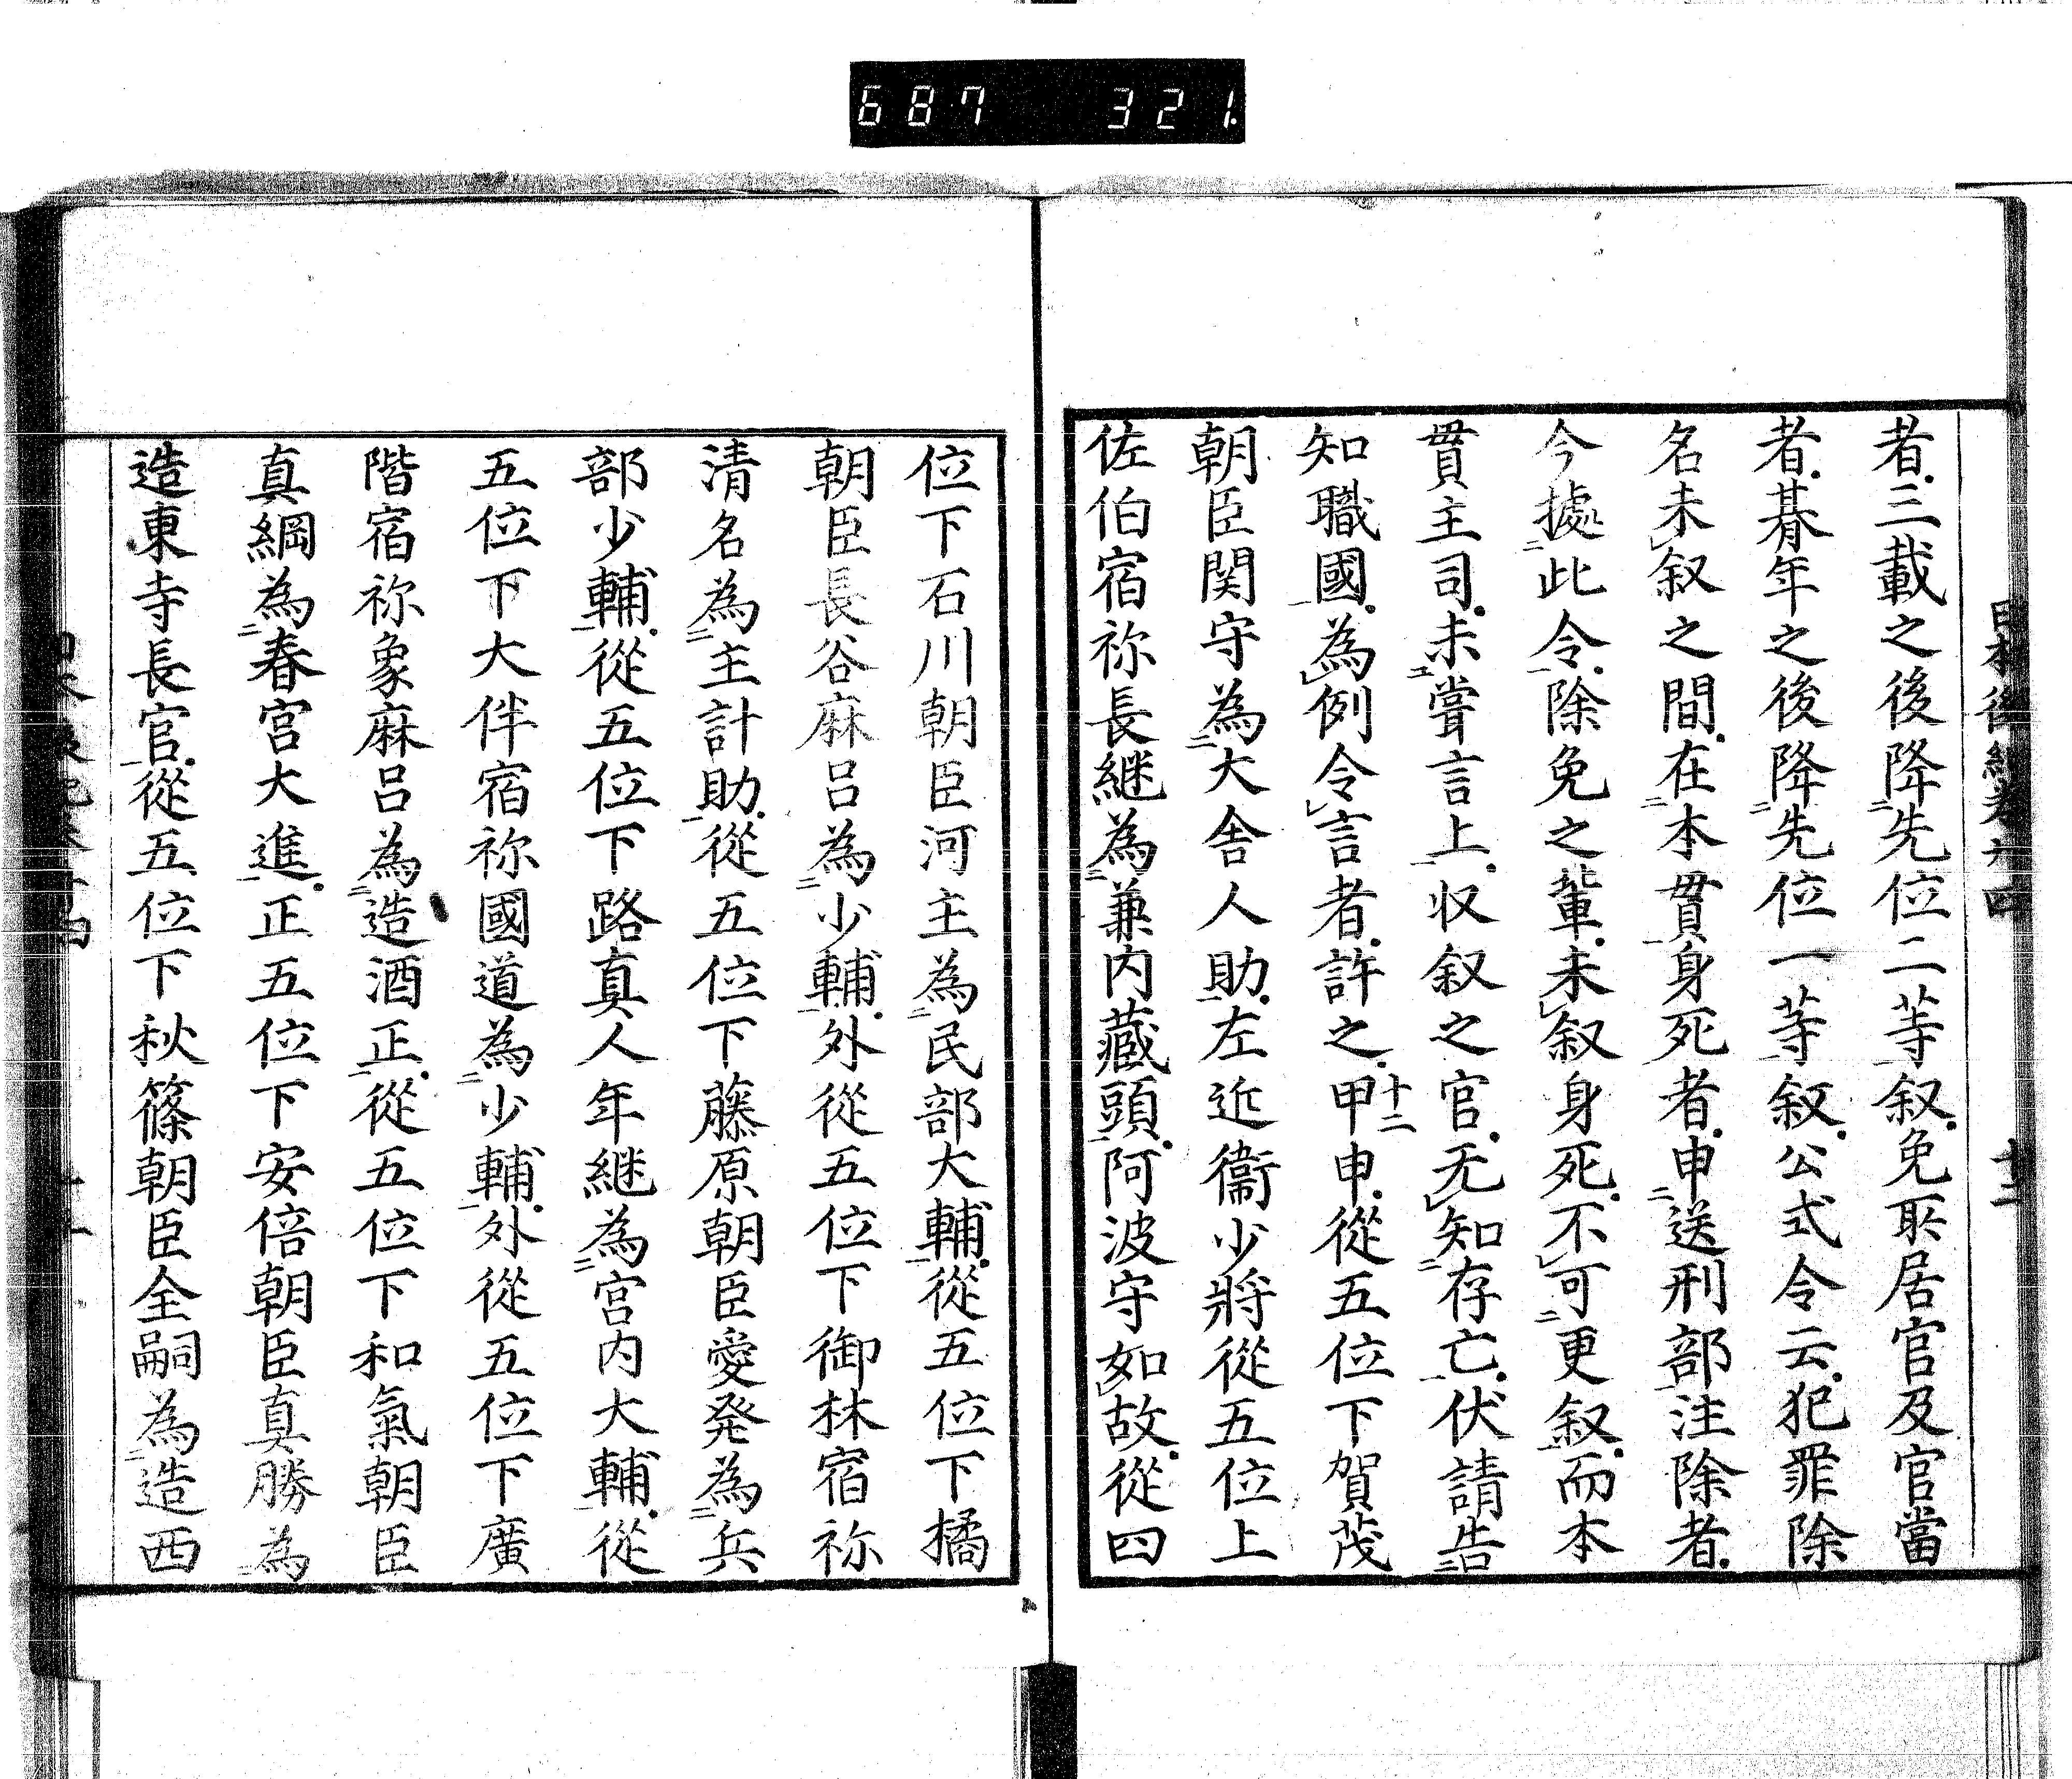 687 321
者三載之後降先位二等叙免耴居官及官當
者朞年之後降先位一等叙公式令云犯罪除
名未叙之間在本貫身死者申送刑部注除者
今據此令除免之輩未叙身死不可更叙而本
貫主司未嘗言上収叙之官无知存亡伏請告
知職國為例令言者許之甲申十二從五位下賀茂
朝臣関守為大舎人助左近衞少將從五位上
佐伯宿祢長継為兼内藏頭阿波守如故從四
位下石川朝臣河主為民部大輔從五位下橘
朝臣長谷麻呂為少輔外從五位下御林宿祢
清名為主計助從五位下藤原朝臣愛発為兵
部少輔從五位下路真人年継為宮内大輔從
五位下大伴宿祢國道為少輔外從五位下廣
階宿祢象麻呂為造酒正從五位下和氣朝臣
真綱為春宮大進正五位下安倍朝臣真勝為
造東寺長官從五位下秋篠朝臣全嗣為造西